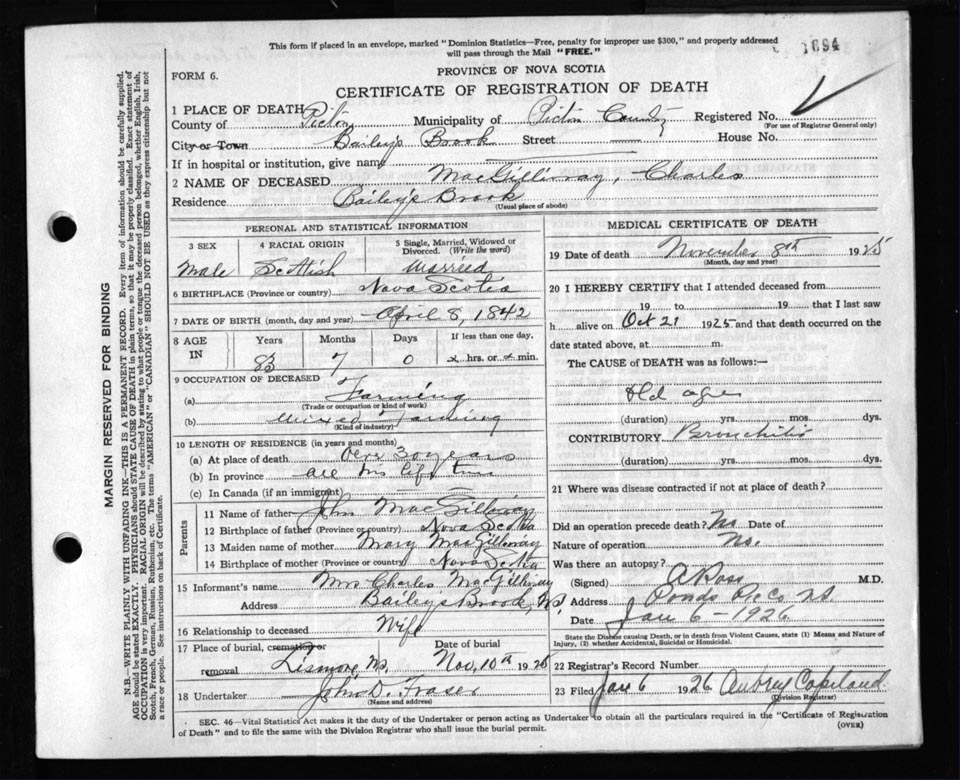 This form if placed in an envelope, marked "Dominion Statistics—Free, penalty for improper use $300," and properly addressed
will pass through the Mail "FREE."
1894
FORM 6.
PROVINCE OF NOVA SCOTIA
CERTIFICATE OF REGISTRATION OF DEATH
1 PLACE OF DEATH
County of Pictou Municipality of Pictou County Registered No.
(For use of Registrar General only)
City or Town Bailey's Brook Street — House No.
If in hospital or institution, give name
2 NAME OF DECEASED MacGillivray, Charles
Residence Bailey's Brook
(Usual place of abode)
PERSONAL AND STATISTICAL INFORMATION
3 SEX 4 RACIAL ORIGIN 5 Single, Married, Widowed or Divorced. (Write the word)
Male Scottish Married
6 BIRTHPLACE (Province or country) Nova Scotia
7 DATE OF BIRTH (month, day and year) April 8, 1842
8 AGE IN Years Months Days If less than one day,
83 7 0 hrs. or min.
9 OCCUPATION OF DECEASED
(a) Farming
(Trade or occupation or kind of work)
(b) Mixed Farming
(Kind of industry)
10 LENGTH OF RESIDENCE (in years and months)
(a) At place of death Over 30 years
(b) In province all his life time
(c) In Canada (if an immigrant)
Parents
11 Name of father John MacGillivray
12 Birthplace of father (Province or country) Nova Scotia
13 Maiden name of mother Mary MacGillivray
14 Birthplace of mother (Province or country) Nova Scotia
15 Informant's name Mrs Charles MacGillivray
Address Bailey's Brook, N.S
16 Relationship to deceased Wife
17 Place of burial, cremation or removal Date of burial
Lismore, N.S. Nov, 10th 1925
18 Undertaker John D. Fraser
(Name and address)
MEDICAL CERTIFICATE OF DEATH
19 Date of death November 8th 1925
(Month, day and year)
20 I HEREBY CERTIFY that I attended deceased from
19 to 19 that I last saw
h alive on Oct 21 1925 and that death occurred on the
date stated above, at m.
The CAUSE of DEATH was as follows:—
Old age
(duration) yrs. mos. dys.
CONTRIBUTORY Bronchitis
(duration) yrs. mos. dys.
21 Where was disease contracted if not at place of death?
Did an operation precede death? No Date of
Nature of operation No.
Was there an autopsy?
(Signed) A Ross M.D.
Address Ponds Pic Co NS
Date Jan 6 - 1926
State the Disease causing Death, or in death from Violent Causes, state (1) Means and Nature of
Injury, (2) whether Accidental, Suicidal or Homicidal.
22 Registrar's Record Number
23 Filed Jan 6 1926 Aubrey Copeland
(Division Registrar)
SEC. 46—Vital Statistics Act makes it the duty of the Undertaker or person acting as Undertaker to obtain all the particulars required in the "Certificate of Registration
of Death" and to file the same with the Division Registrar who shall issue the burial permit.
(OVER)
MARGIN RESERVED FOR BINDING
N.B.—WRITE PLAINLY WITH UNFADING INK—THIS IS A PERMANENT RECORD. Every item of information should be carefully supplied.
AGE should be stated EXACTLY. PHYSICIANS should STATE CAUSE OF DEATH in plain terms, so that it may be properly classified. Exact statement of
OCCUPATION is very important. RACIAL ORIGIN will be described by stating to what people or tongue the deceased person belonged, whether English, Irish,
Scotch, French, German, Russian, Ruthenian, etc. The terms "AMERICAN" or "CANADIAN" SHOULD NOT BE USED as they express citizenship but not
a race or people. See instructions on back of Certificate.